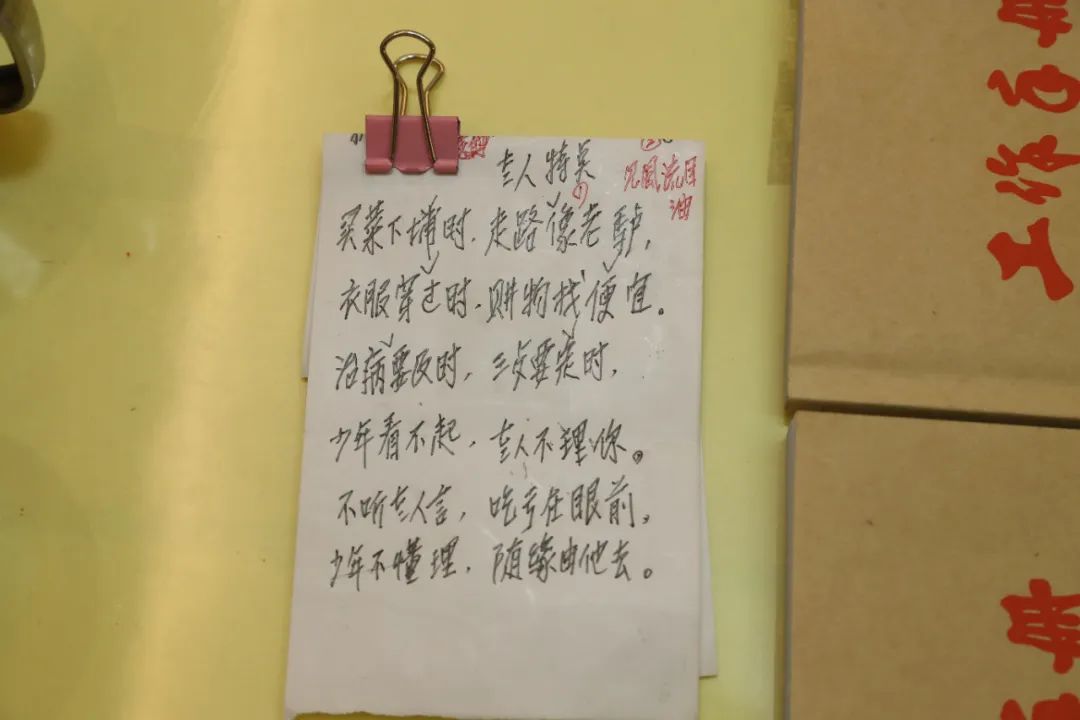 老人特点
见風流目
油
买菜下埔时，走路像老驴，
衣服穿过时，购物找便宜。
治病要及时，三歺要定时，
少年看不起，老人不理你。
不听老人言，吃亏在眼前，
少年不懂理，随缘由他去。
工作